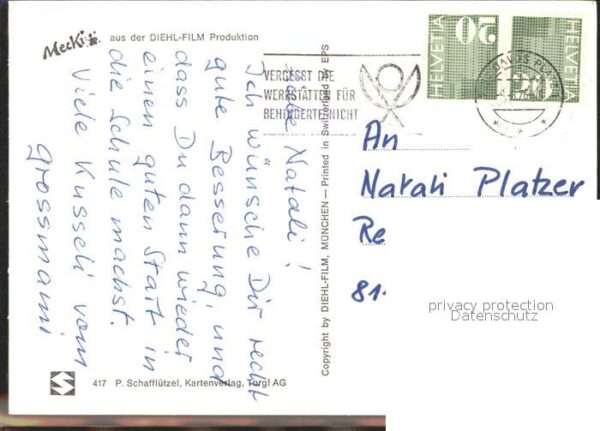 Mecki
aus der DIEHL-FILM Produktion
Liebe Natali!
Ich wünsche Dir recht
gute Besserung, und
dass Du dann wieder
einen guten Start in
die Schule machst.
Viele Kusseli vom
grossmami
417 P. Schafflützel, Kartenverlag, Torgl AG
Copyright by DIEHL-FILM, MÜNCHEN — Printed in Switzerland by EPS
VERGESST DIE
WERKSTÄTTEN FÜR
BEHINDERTE NICHT
HELVETIA
20
HELVETIA
20
An
Natali Platzer
Re
81
privacy protection
Datenschutz